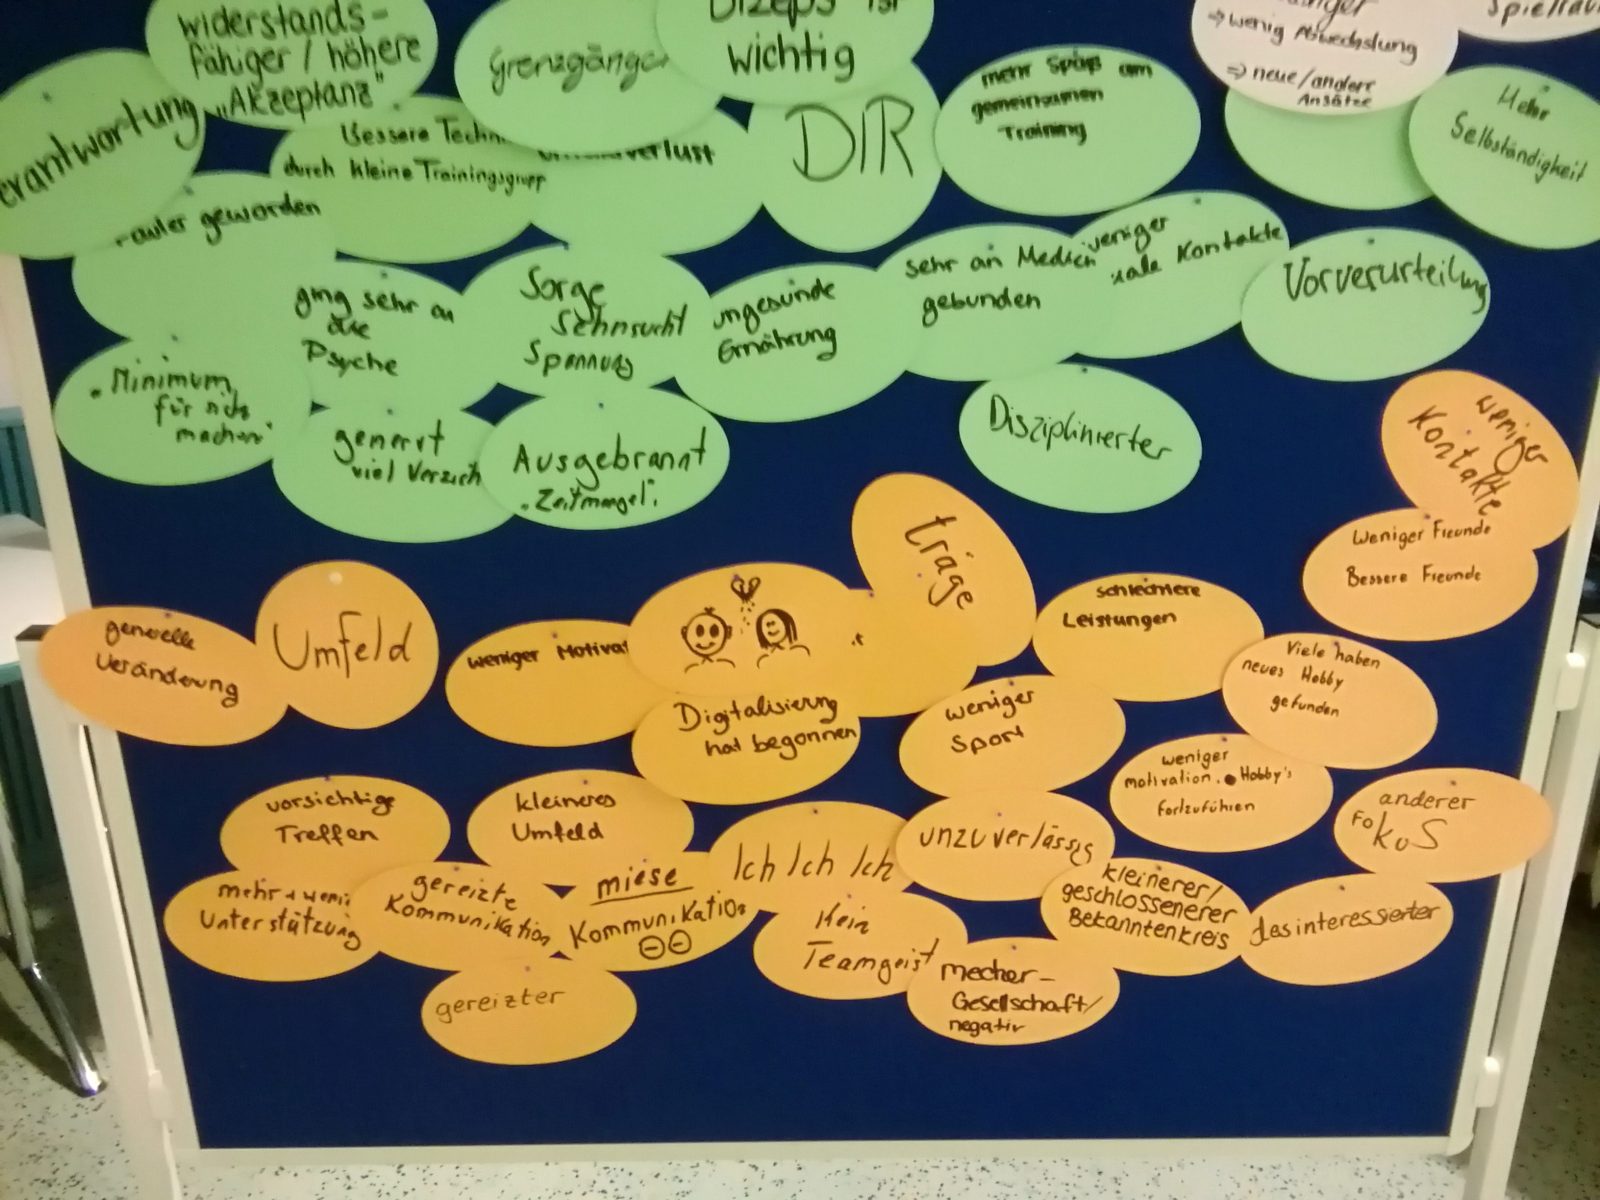 widerstands-
fähiger / höhere
„Akzeptanz"
Grenzgänger
Bizeps ist
wichtig
⇒ wenig Abwechslung
⇒ neue/andere
Ansätze
Verantwortung
Bessere Techn
durch kleine Trainingsgrupp
verlust
DIR
mehr Spaß am
gemeinsamen
Training
Mehr
Selbständigkeit
geworden
ging sehr an
die
Psyche
Sorge
Sehnsucht
Spannung
ungesunde
Ernährung
sehr an Medien
gebunden
weniger
Kontakte
Vorverurteilung
„Minimum
für sich
machen"
genervt
viel Verzich
Ausgebrannt
„Zeitmangel".
Disziplinierter
weniger
Kontakte
Weniger Freunde
Bessere Freunde
generelle
Veränderung
Umfeld
weniger Motivat
träge
schlechtere
Leistungen
Viele haben
neues Hobby
gefunden
Digitalisierung
hat begonnen
weniger
Sport
weniger
motivation. Hobby's
fortzuführen
anderer
FoKuS
vorsichtige
Treffen
kleineres
Umfeld
Ich Ich Ich
unzuverlässig
mehr
Unterstützung
gereizte
Kommunikation
miese
Kommunikation
Kein
Teamgeist
kleinerer/
geschlossenerer
Bekanntenkreis
desinteressierter
gereizter
mecher-
Gesellschaft/
negativ